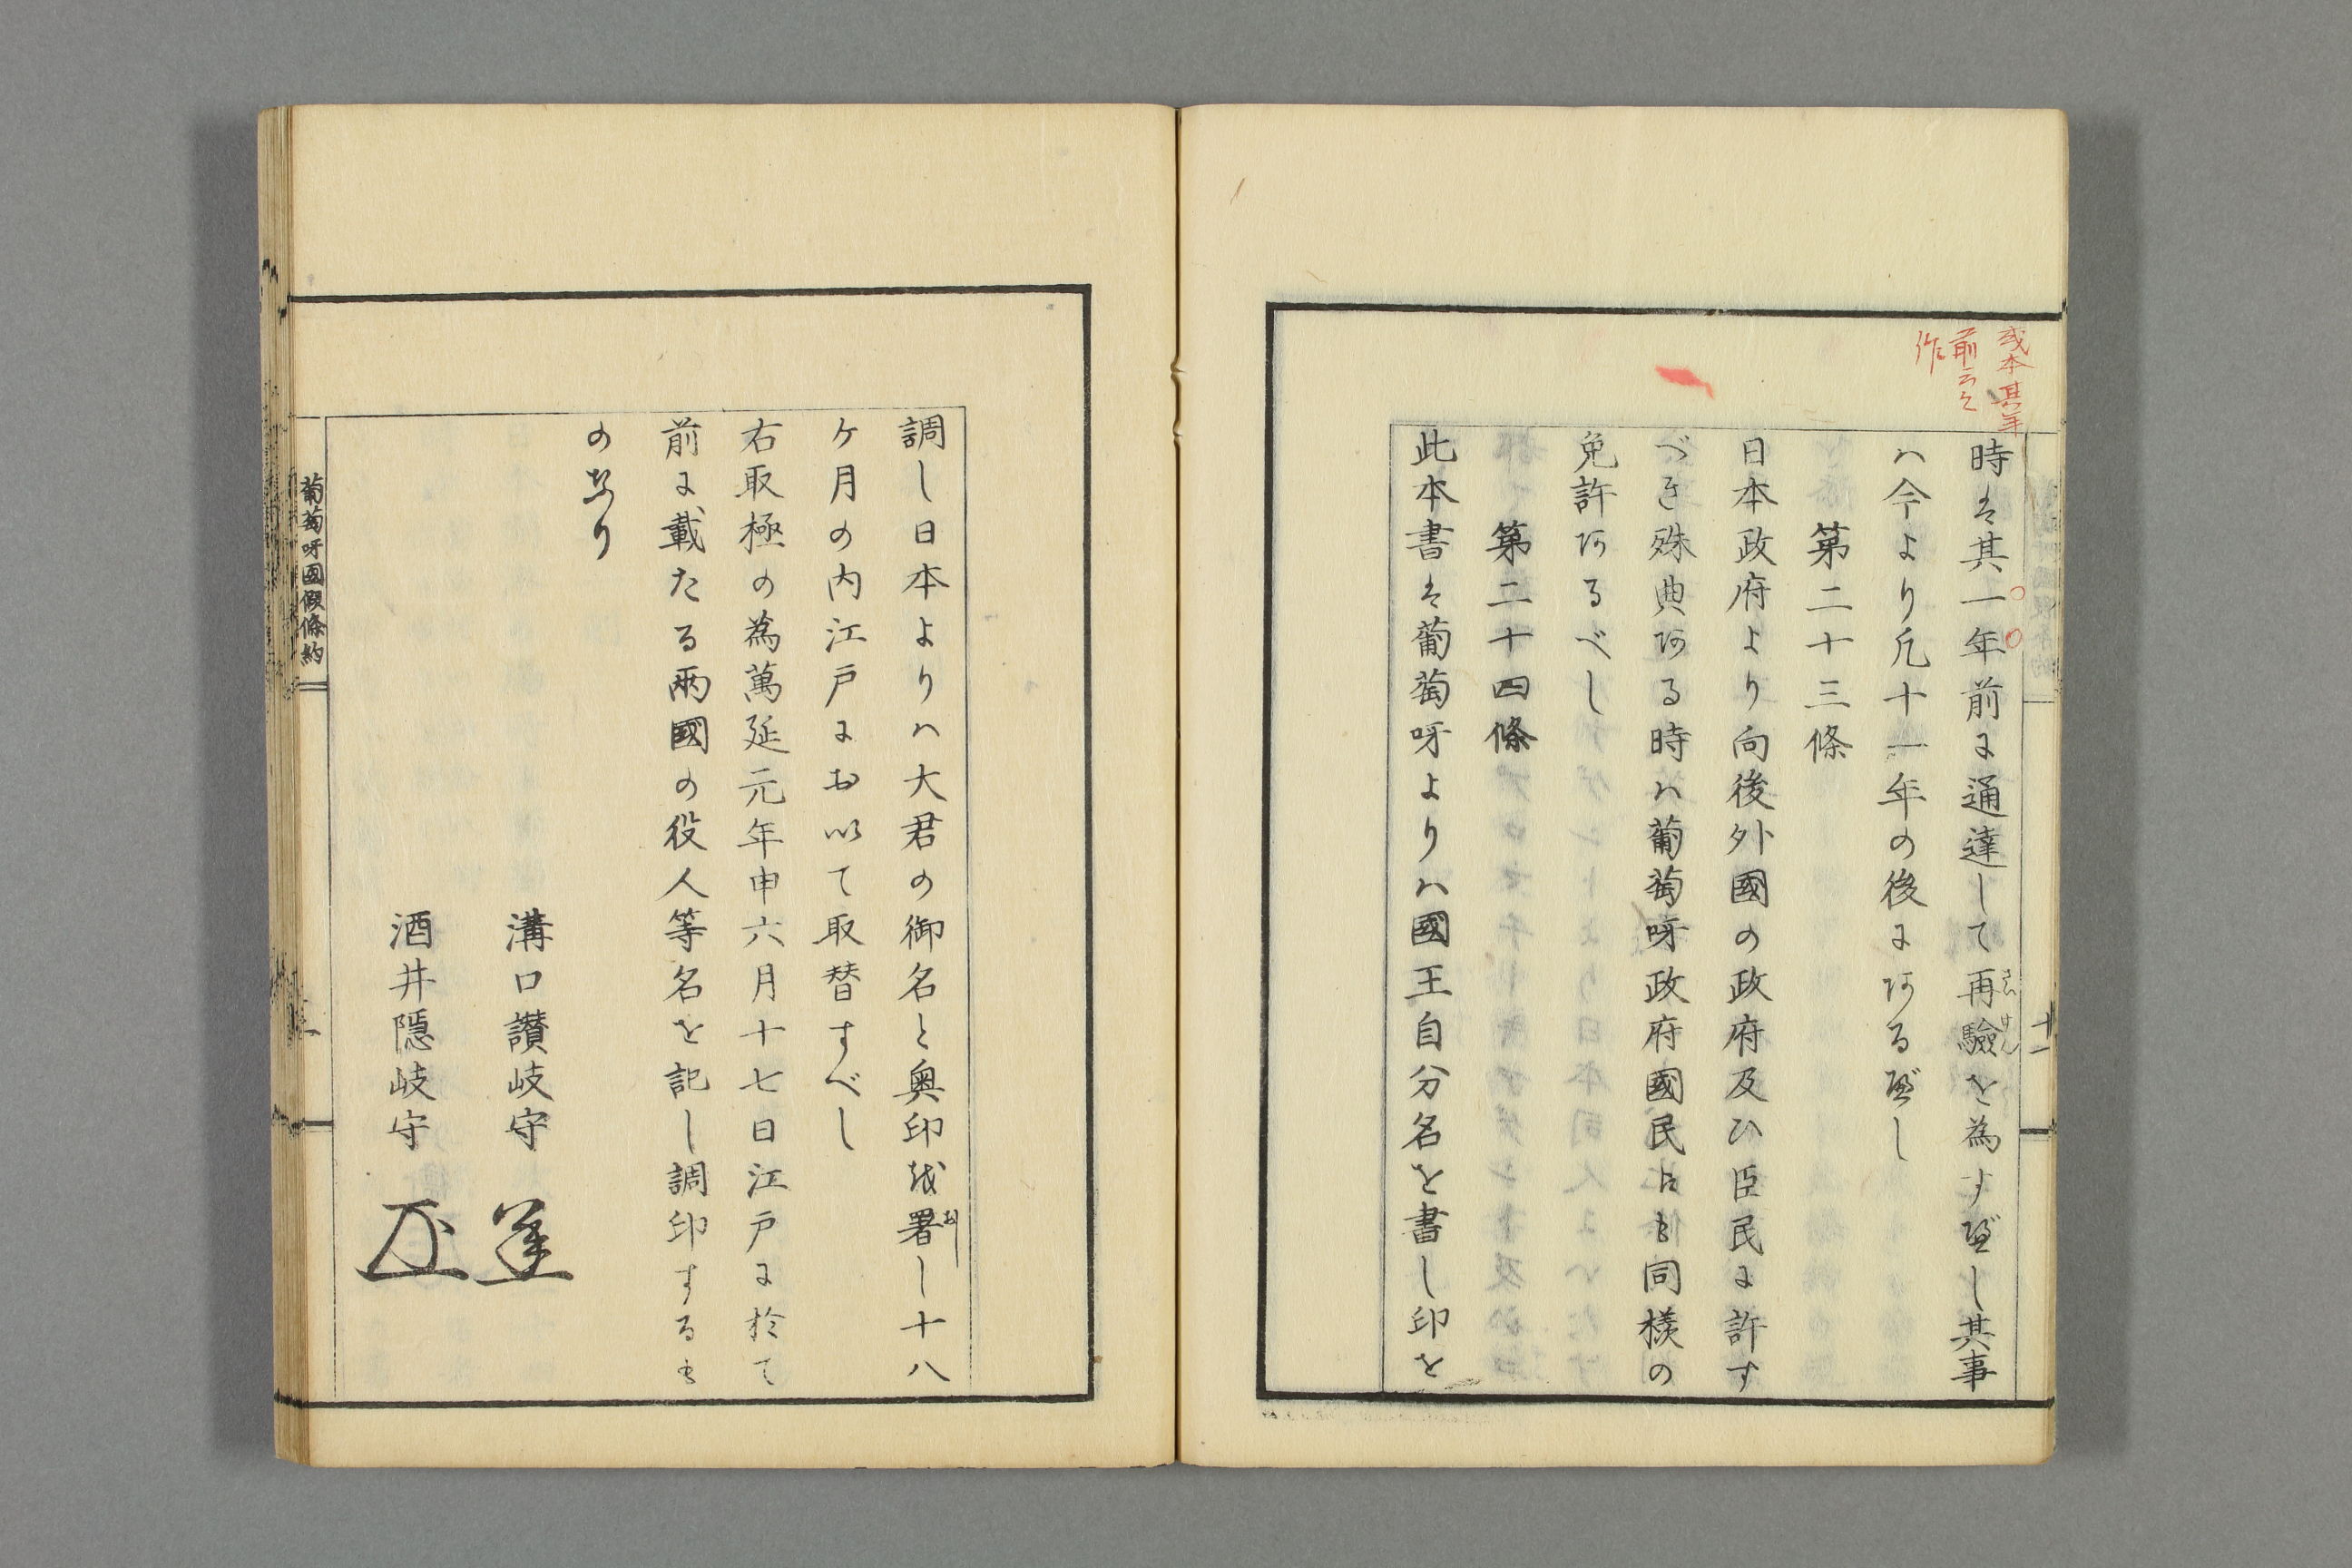 或本其年
前云々
作
時は其一年前に通達して再驗を為す遍し其事
さいけん
ハ今より凡十一年の後に阿る遍し
第二十三條
日本政府より向後外國の政府及ひ臣民に許す
べき殊典阿る時ハ葡萄呀政府國民にも同様の
免許阿るべし
第二十四條
此本書は葡萄呀よりハ國王自分名を書し印を
十一
調し日本よりハ大君の御名と奥印越署し十八
ケ月の内江戸にお以て取替すべし
右取極の為萬延元年申六月十七日江戸に於て
前に載たる兩國の役人等名を記し調印するも
のなり
溝口讃岐守
酒井隠岐守
葡萄呀國假條約